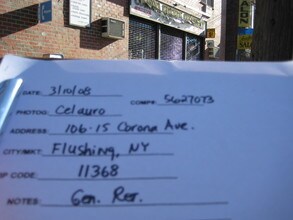 DATE: 3/10/08
COMP#: 5627073
PHOTOG: Celauro
ADDRESS: 106-15 Corona Ave.
CITY/MKT: Flushing, NY
ZIP CODE: 11368
NOTES: Gen. Ret.